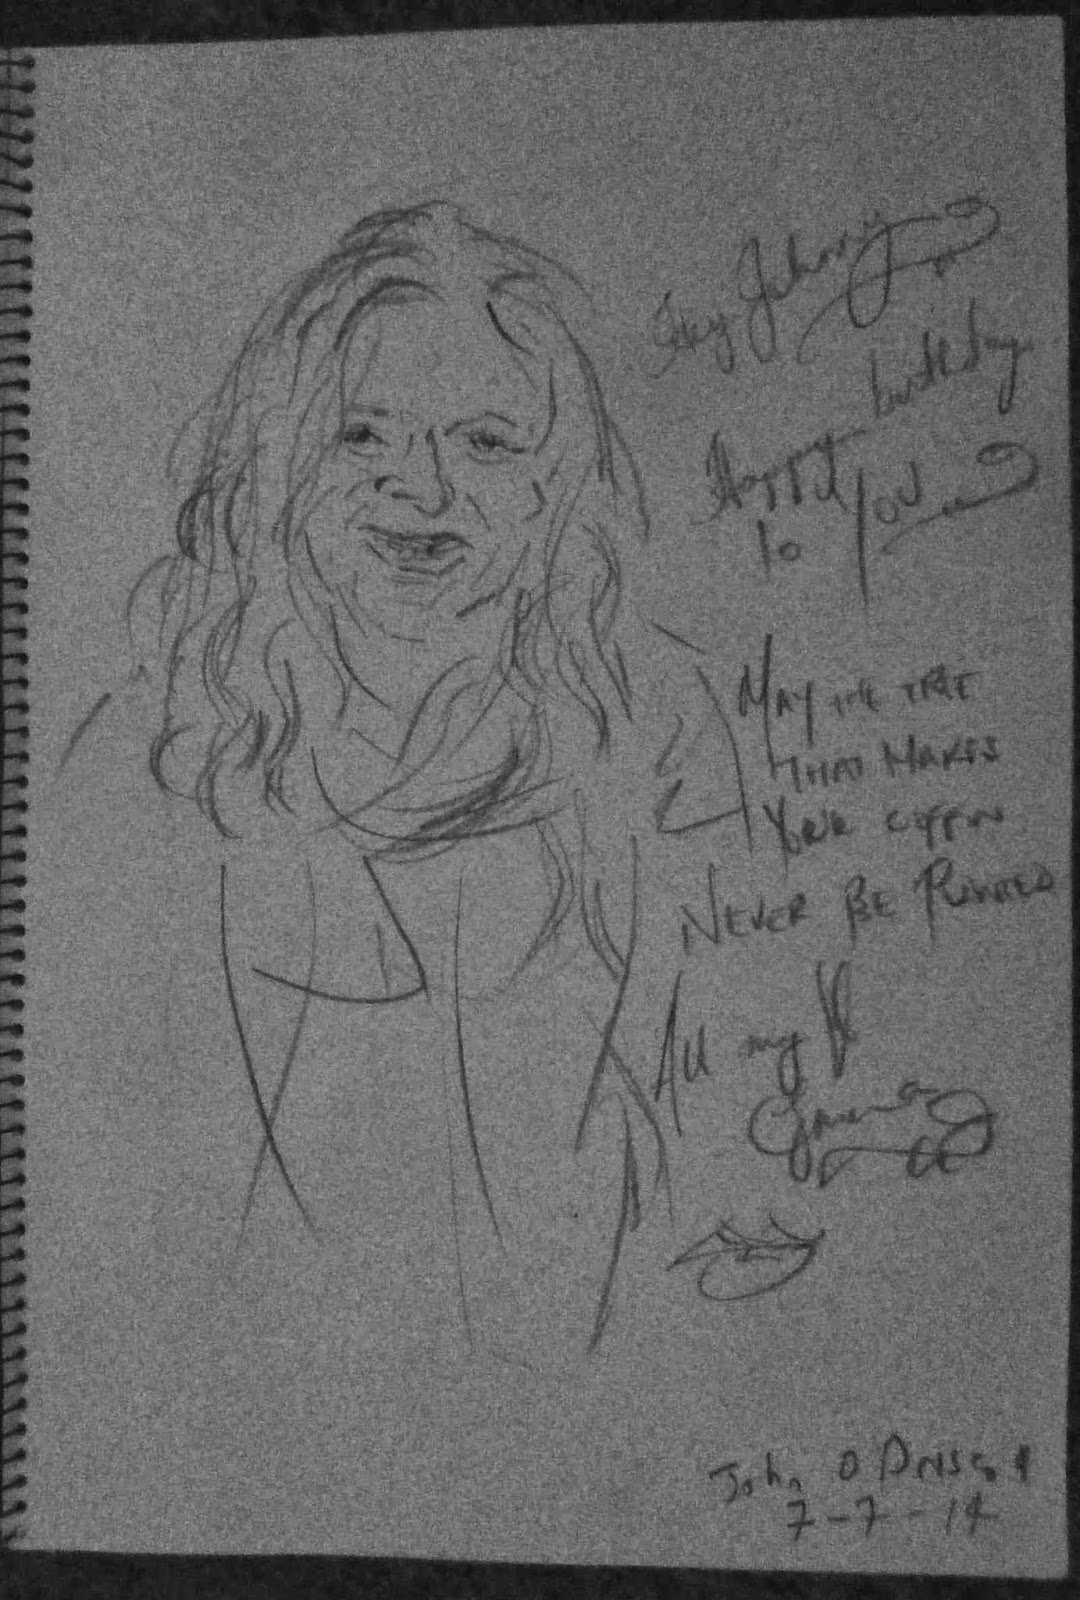 Hey Johnny
Happy birthday
to you
MAY THE TREE
THAT MAKES
YOUR COFFIN
NEVER BE PLANTED
All my
John O Driscoll
7-7-14